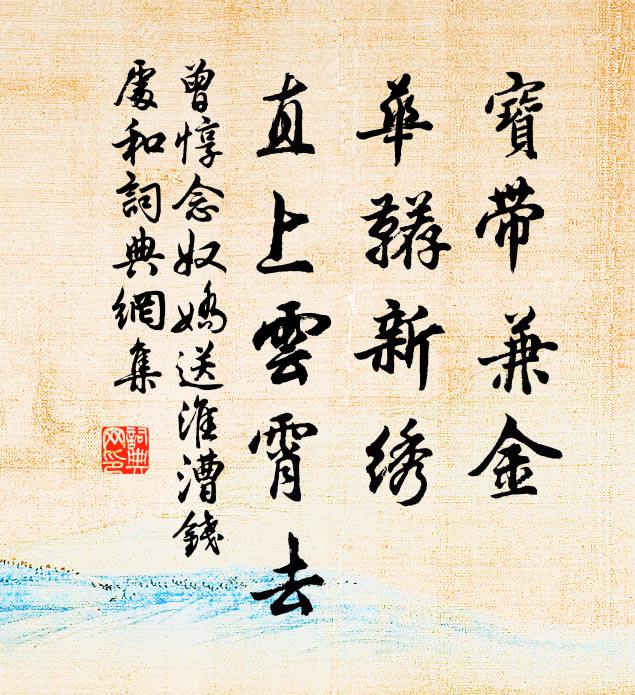 寶带兼金
華韉新绣
直上雲霄去
曾惇念奴嬌送淮漕錢
處和詞典網集
詞典
网印